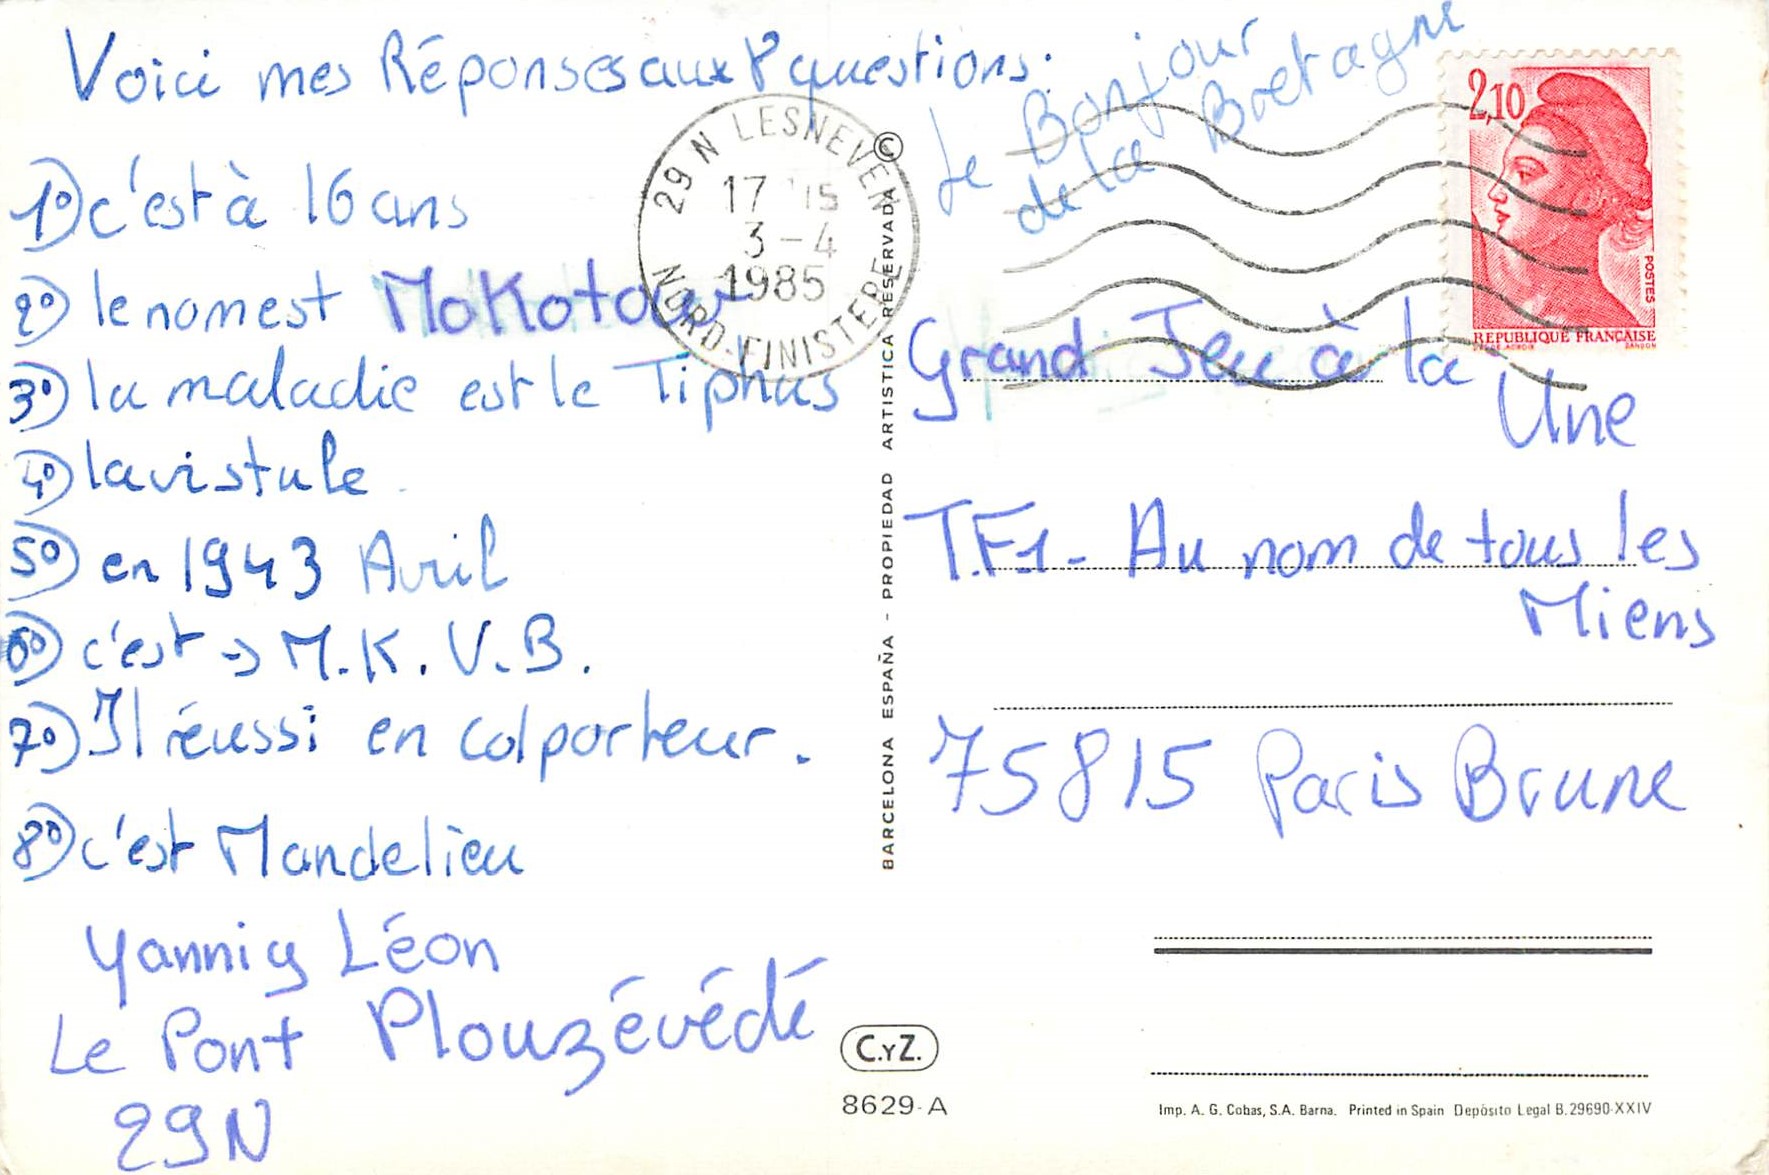 Voici mes Réponses aux 8 questions.
1°) c'est à 16 ans
2°) le nom est Mokotow
3°) la maladie est le Tiphus
4°) la vistule
5°) en 1943 Avril
6°) c'est → M.K.V.B.
7°) Il réussi en colporteur.
8°) c'est Mandelieu
Yannig Léon
Le Pont Plouzévédé
29N
29 N LESNEVEN
17 15
3-4
1985
NORD-FINISTERE
Le Bonjour
de la Bretagne
2,10
POSTES
REPUBLIQUE FRANÇAISE
Grand Jeu à la
Une
T.F1- Au nom de tous les
Miens
75815 Paris Brune
BARCELONA ESPAÑA - PROPIEDAD ARTISTICA RESERVADA ©
C.YZ.
8629-A
Imp. A. G. Cobas, S.A. Barna. Printed in Spain Depósito Legal B. 29690-XXIV